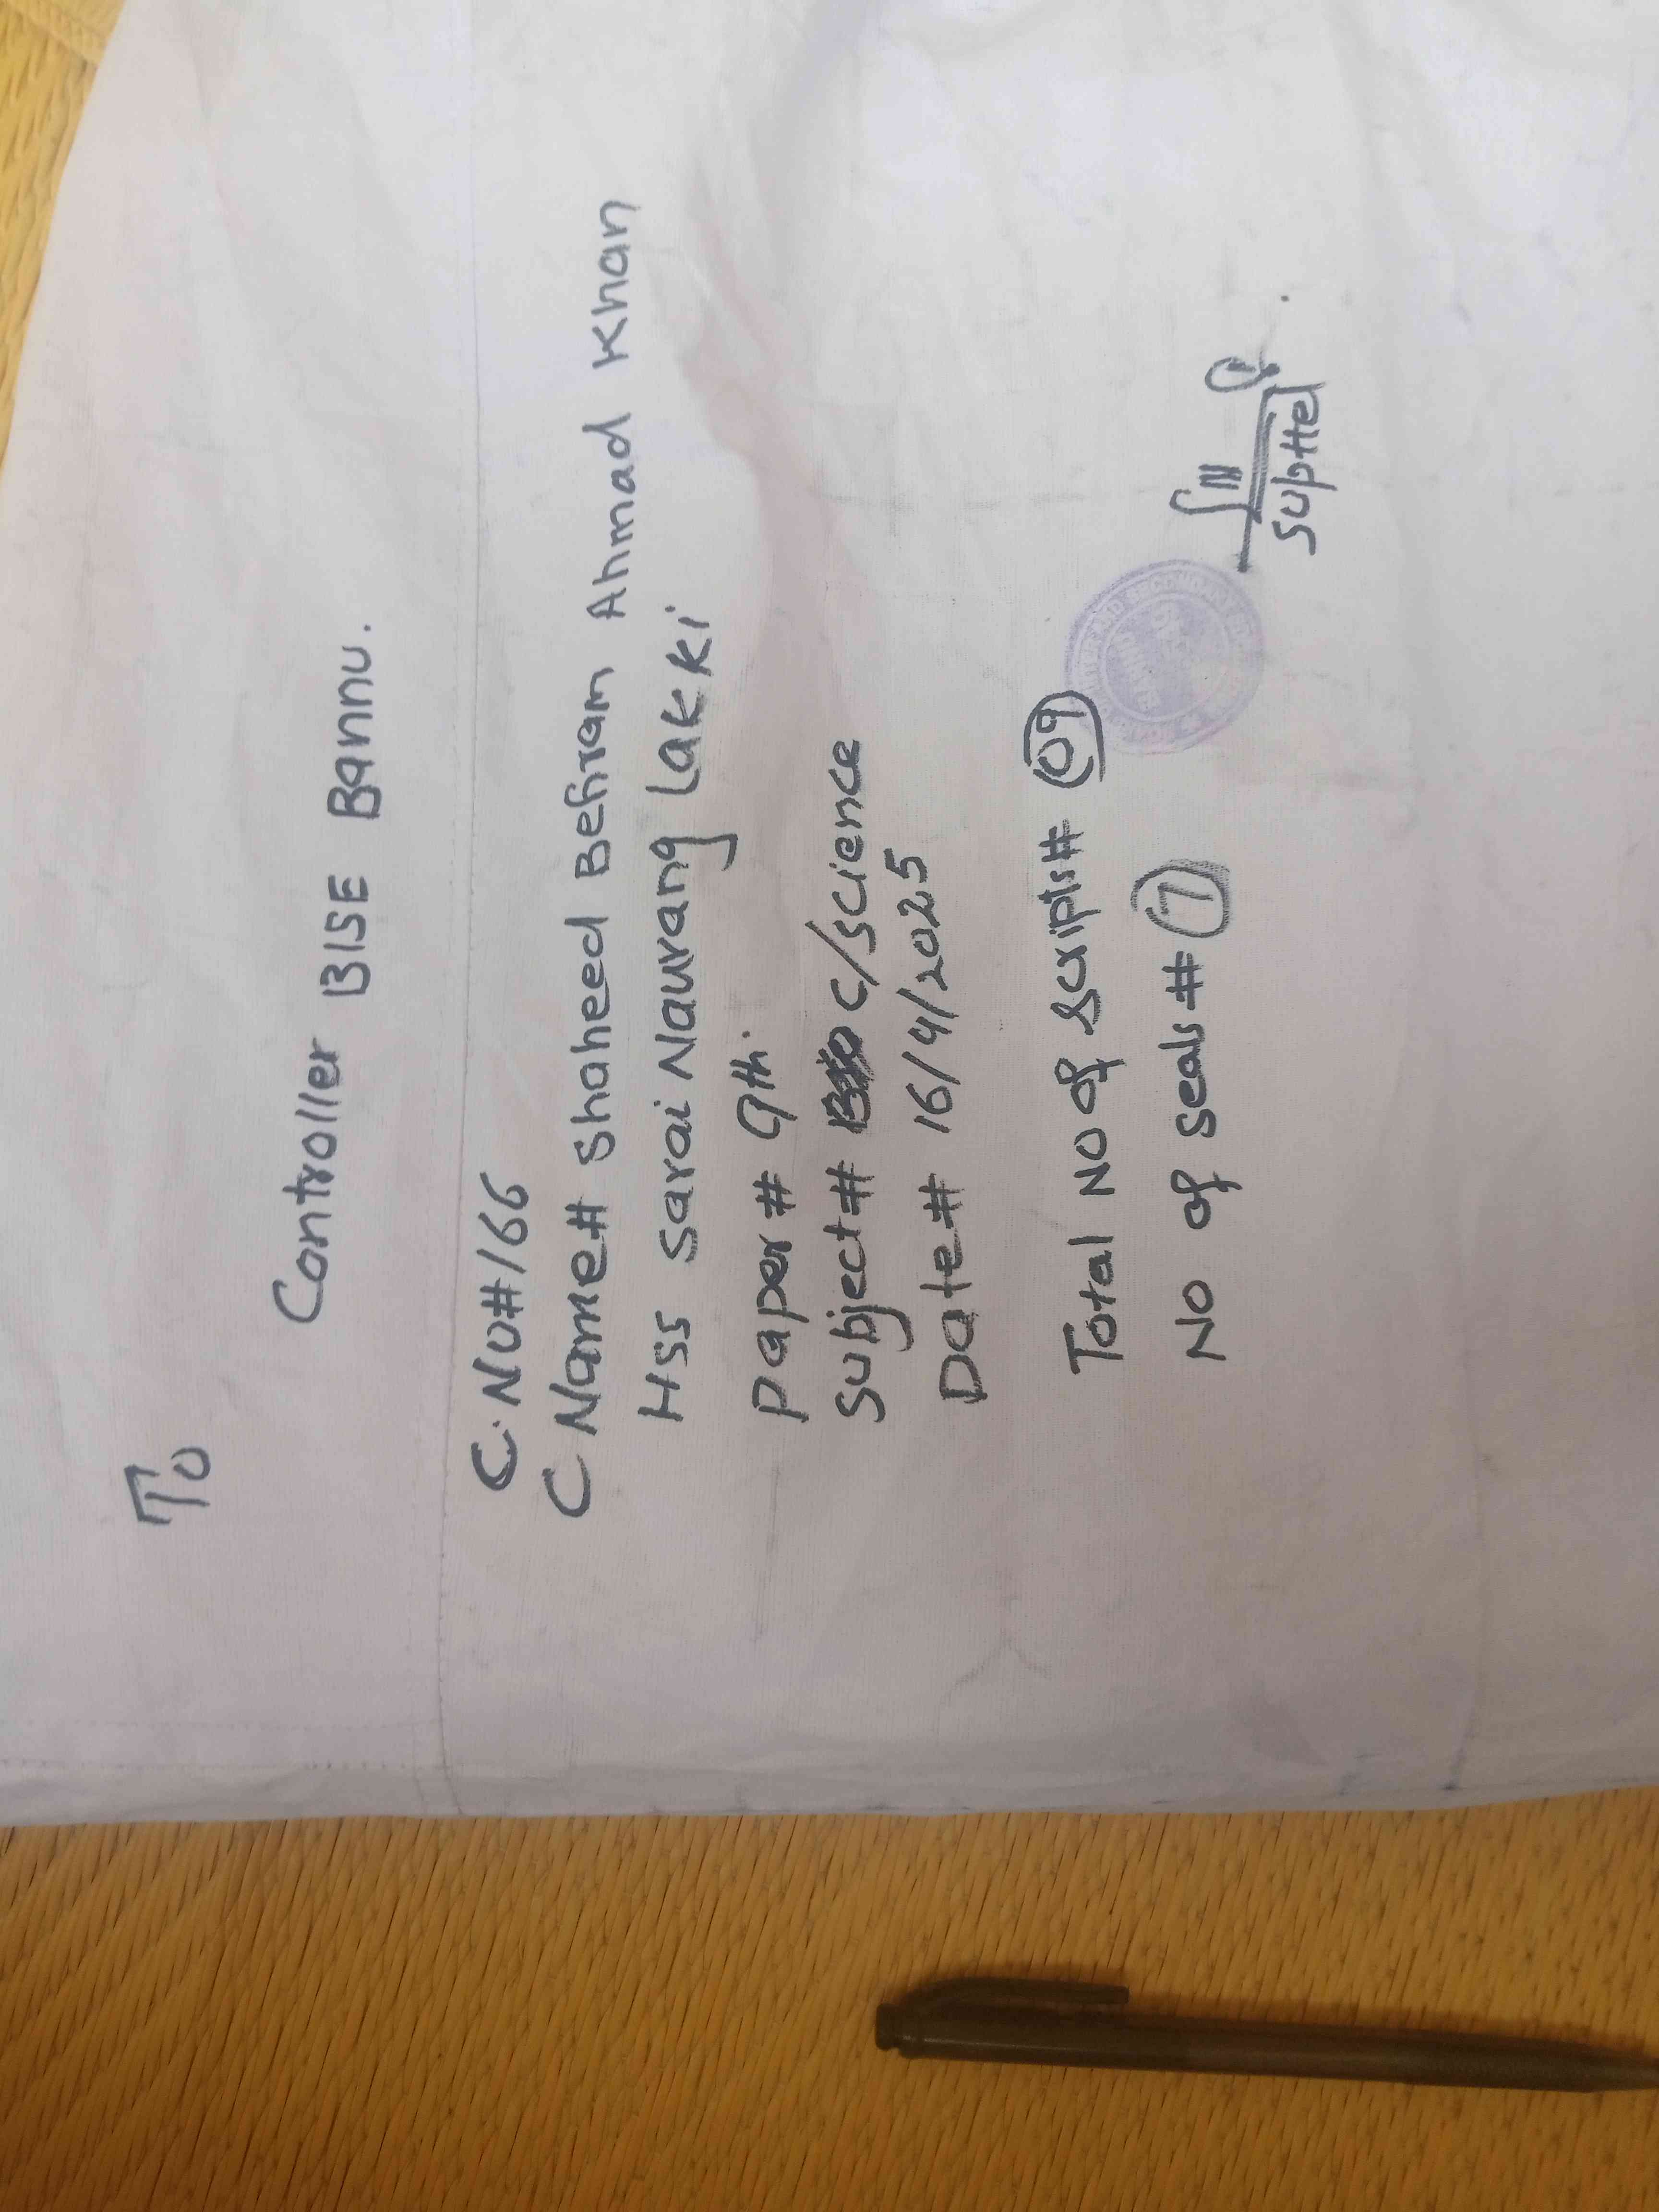 To
Controller BISE Bannu.
C.No#166
C Name# Shaheed Behram Ahmad Khan
Hss Sarai Naurang Lakki
Paper# 9th.
Subject# C/Science
Date# 16/4/2025
Total No of scripts# 09
No of seals# 7
Suptte
SECONDARY
BANNU